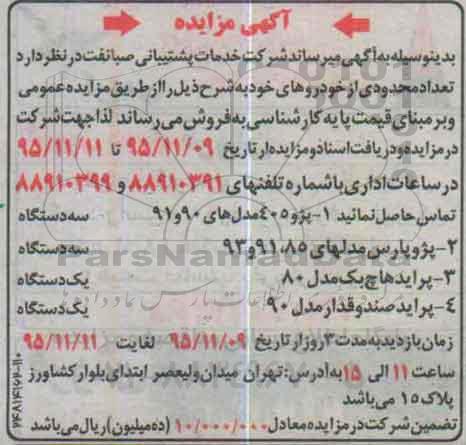 آگهی مزایده
بدینوسیله به آگهی میرساند شرکت خدمات پشتیبانی صبانفت در نظر دارد
تعداد محدودی از خودروهای خود به شرح ذیل را از طریق مزایده عمومی
و بر مبنای قیمت پایه کارشناسی به فروش می رساند لذا جهت شرکت
در مزایده و دریافت اسناد و مزایده از تاریخ ۹۵/۱۱/۰۹ تا ۹۵/۱۱/۱۱
در ساعات اداری با شماره تلفنهای ۸۸۹۱۰۳۹۱ و ۸۸۹۱۰۳۹۹
تماس حاصل نمائید ۱- پژو ۴۰۵ مدل های ۹۰ و ۹۱ سه دستگاه
۲- پژو پارس مدلهای ۸۵، ۹۱ و ۹۳ سه دستگاه
ParsNamadData
۳- پراید هاچ بک مدل ۸۰ یک دستگاه
۴- پراید صندوقدار مدل ۹۰ یک دستگاه
زمان بازدید به مدت ۳ روز از تاریخ ۹۵/۱۱/۰۹ لغایت ۹۵/۱۱/۱۱
ساعت ۱۱ الی ۱۵ به آدرس: تهران میدان ولیعصر ابتدای بلوار کشاورز
پلاک ۱۵ می باشد
تضمین شرکت در مزایده معادل ۱۰/۰۰۰/۰۰۰ (ده میلیون) ریال می باشد